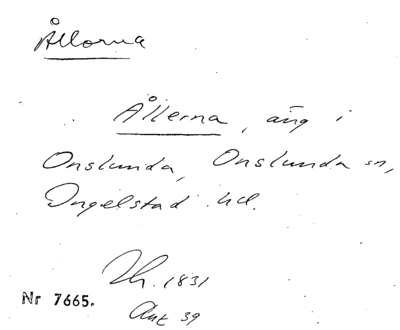 Ållorna
Ållerna, äng i
Onslunda, Onslunda sn,
Ingelstad hd.
Lh. 1831
Nr 7665.
Akt 39